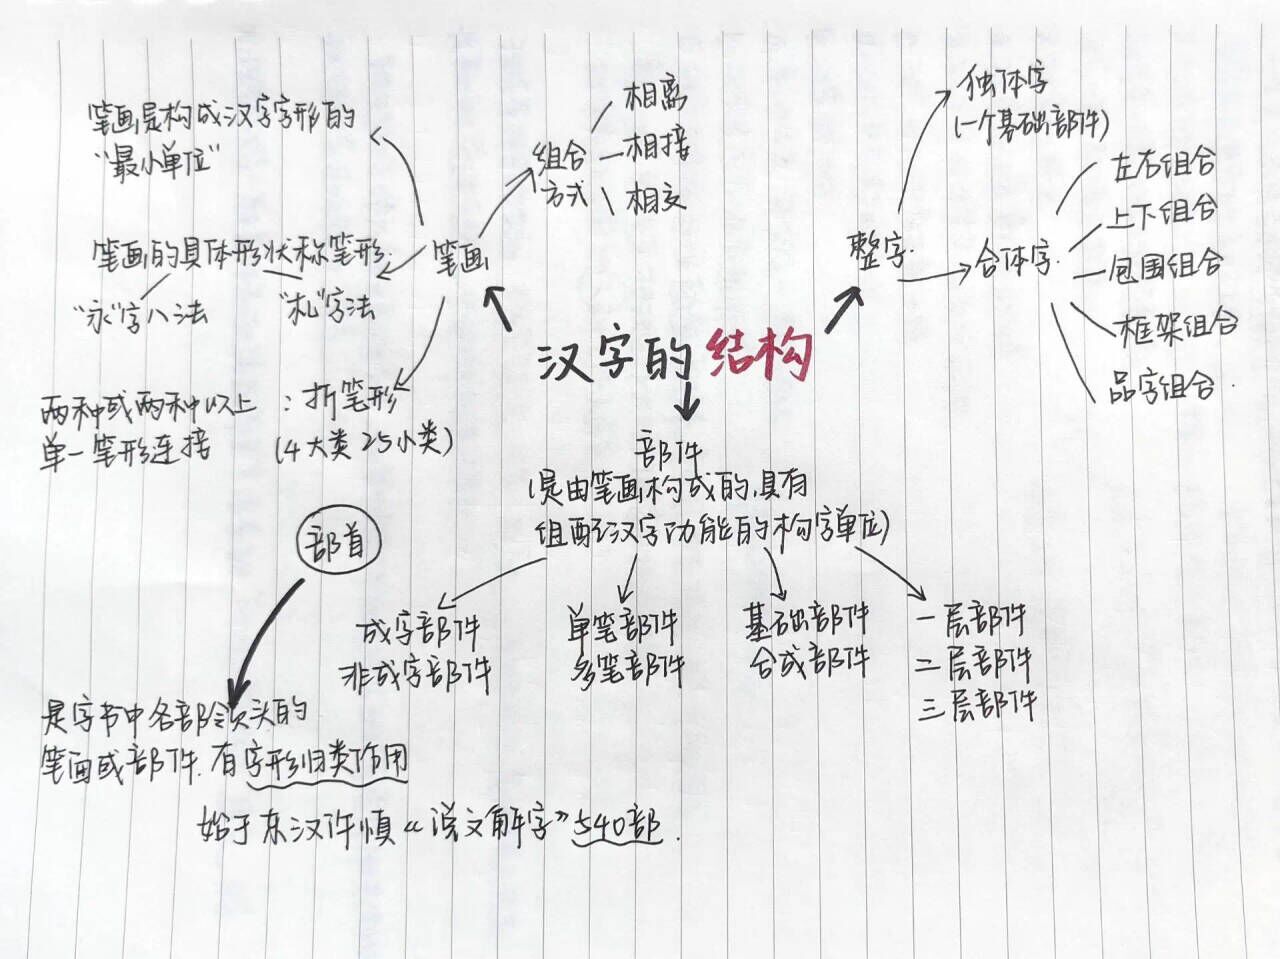 笔画是构成汉字字形的
"最小单位"
笔画的具体形状称笔形.
"永"字八法
"札"字法
两种或两种以上
单一笔形连接
：折笔形
(4大类25小类)
笔画
组合
方式
相离
相接
相交
汉字的结构
整字
独体字
(一个基础部件)
合体字.
左右组合
上下组合
包围组合
框架组合
品字组合.
部件
(是由笔画构成的,具有
组配汉字功能的构字单位)
成字部件
非成字部件
单笔部件
多笔部件
基础部件
合成部件
一层部件
二层部件
三层部件
部首
是字书中各部领头的
笔画或部件.有字形归类作用
始于东汉许慎《说文解字》540部.